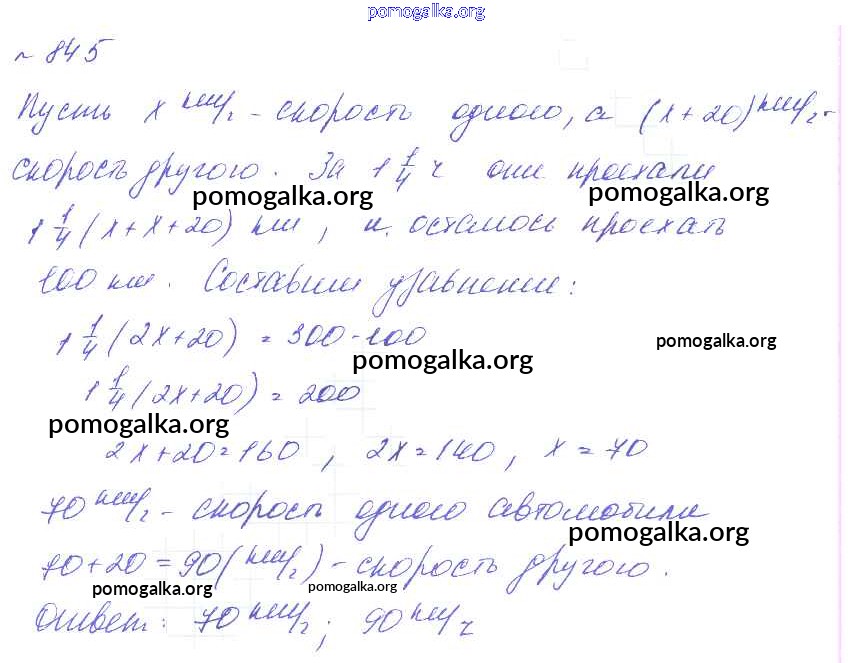 pomogalka.org
№ 845
Пусть x км/ч - скорость одного, а (x+20) км/ч -
скорость другого. За 1 1/4 ч они проехали
pomogalka.org pomogalka.org
1 1/4 (x+x+20) км, и осталось проехать
100 км. Составим уравнение:
1 1/4 (2x+20) = 300-100
pomogalka.org pomogalka.org
1 1/4 (2x+20) = 200
pomogalka.org
2x+20=160, 2x=140, x=70
70 км/ч - скорость одного автомобиля
pomogalka.org
70+20=90 (км/ч) - скорость другого.
pomogalka.org pomogalka.org
Ответ: 70 км/ч; 90 км/ч